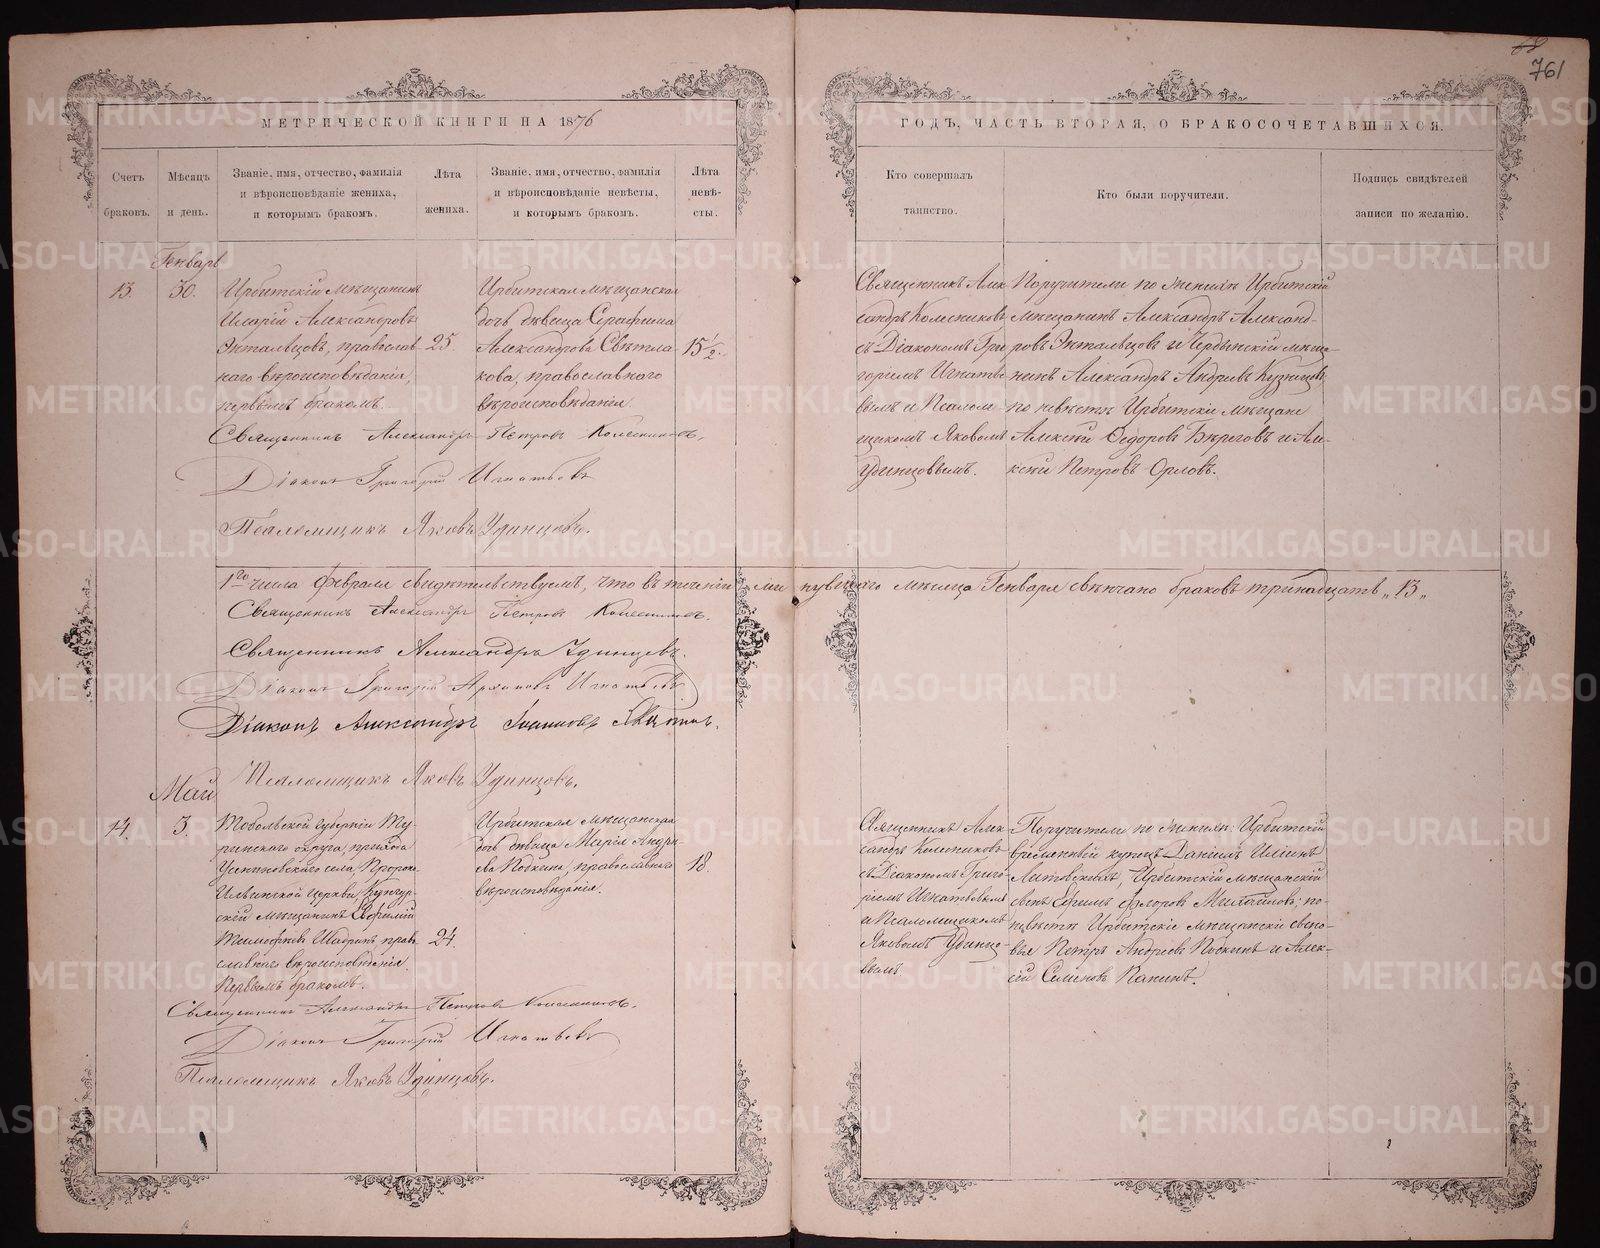 68
761
МЕТРИЧЕСКОЙ КНИГИ НА 1876
ГОДЪ, ЧАСТЬ ВТОРАЯ, О БРАКОСОЧЕТАВШИХСЯ.
Счетъ
браковъ.
Мѣсяцъ
и день.
Званіе, имя, отчество, фамилія
и вѣроисповѣданіе жениха,
и которымъ бракомъ.
Лѣта
жениха.
Званіе, имя, отчество, фамилія
и вѣроисповѣданіе невѣсты,
и которымъ бракомъ.
Лѣта
невѣ-
сты.
Кто совершалъ
таинство.
Кто были поручители.
Подпись свидѣтелей
записи по желанію.
Генварь
13.
30.
Ирбитскій мѣщанинъ
Иларій Александровъ
православ
наго вѣроисповѣданія,
первымъ бракомъ.
25
Ирбитская мѣщанская
дочь дѣвица Серафима
Александрова Свѣтла-
кова, православнаго
вѣроисповѣданія.
15 1/2.
Священникъ Алек
сандръ Колесниковъ
съ Діакономъ Гри
горіемъ Игнатье
вымъ и Псалом
щикомъ Яковомъ
Удинцовымъ.
Поручители по женихѣ Ирбитскій
мѣщанинъ Александръ Александ-
ровъ и Чердынскій мѣща-
нинъ Александръ Андреевъ Кузнецовъ,
по невѣстѣ Ирбитскіе мѣщане
Алексѣй Ѳедоровъ Береговъ и Але-
ксѣй Петровъ Орловъ.
Священникъ Александръ Петровъ Колесниковъ.
Діаконъ Григорій Игнатьевъ
Псаломщикъ Яковъ Удинцовъ.
1го числа февраля свидѣтельствуемъ, что въ теченіи минувшаго мѣсяца Генваря свѣнчано браковъ тринадцать „13„
Священникъ Александръ Петровъ Колесниковъ.
Священникъ Александръ Удинцевъ.
Діаконъ Григорій Игнатьевъ
Діаконъ Александръ Іоанновъ
Псаломщикъ Яковъ Удинцовъ.
Май
14.
3.
Тобольской губерніи Ту-
ринскаго округа, прихода
Усениновскаго села, Пророко-
Ильинской церкви, Кунгур-
скій мѣщанинъ Евфимій
Тимофеевъ Шадринъ право-
славнаго вѣроисповѣданія.
Первымъ бракомъ.
24.
Ирбитская мѣщанская
дочь дѣвица Марія Андре-
ева Подкина, православнаго
вѣроисповѣданія.
18.
Священникъ Алек
сандръ Колесниковъ
съ Діакономъ Григо
ріемъ Игнатьевымъ
и Псаломщикомъ
Яковомъ Удинцо-
вымъ.
Поручители по женихѣ: Ирбитскій
временный купецъ Даніилъ Илiинъ
Литовскихъ, Ирбитскій мѣщанскій
сынъ Ефимъ Флоровъ Михайловъ; по
невѣстѣ Ирбитскіе мѣщанскіе сыно-
вья Петръ Андреевъ Подкинъ и Алек-
сѣй Семеновъ Папинъ.
Священникъ Александръ Петровъ Колесниковъ.
Діаконъ Григорій Игнатьевъ
Псаломщикъ Яковъ Удинцовъ.
METRIKI.GASO-URAL.RU